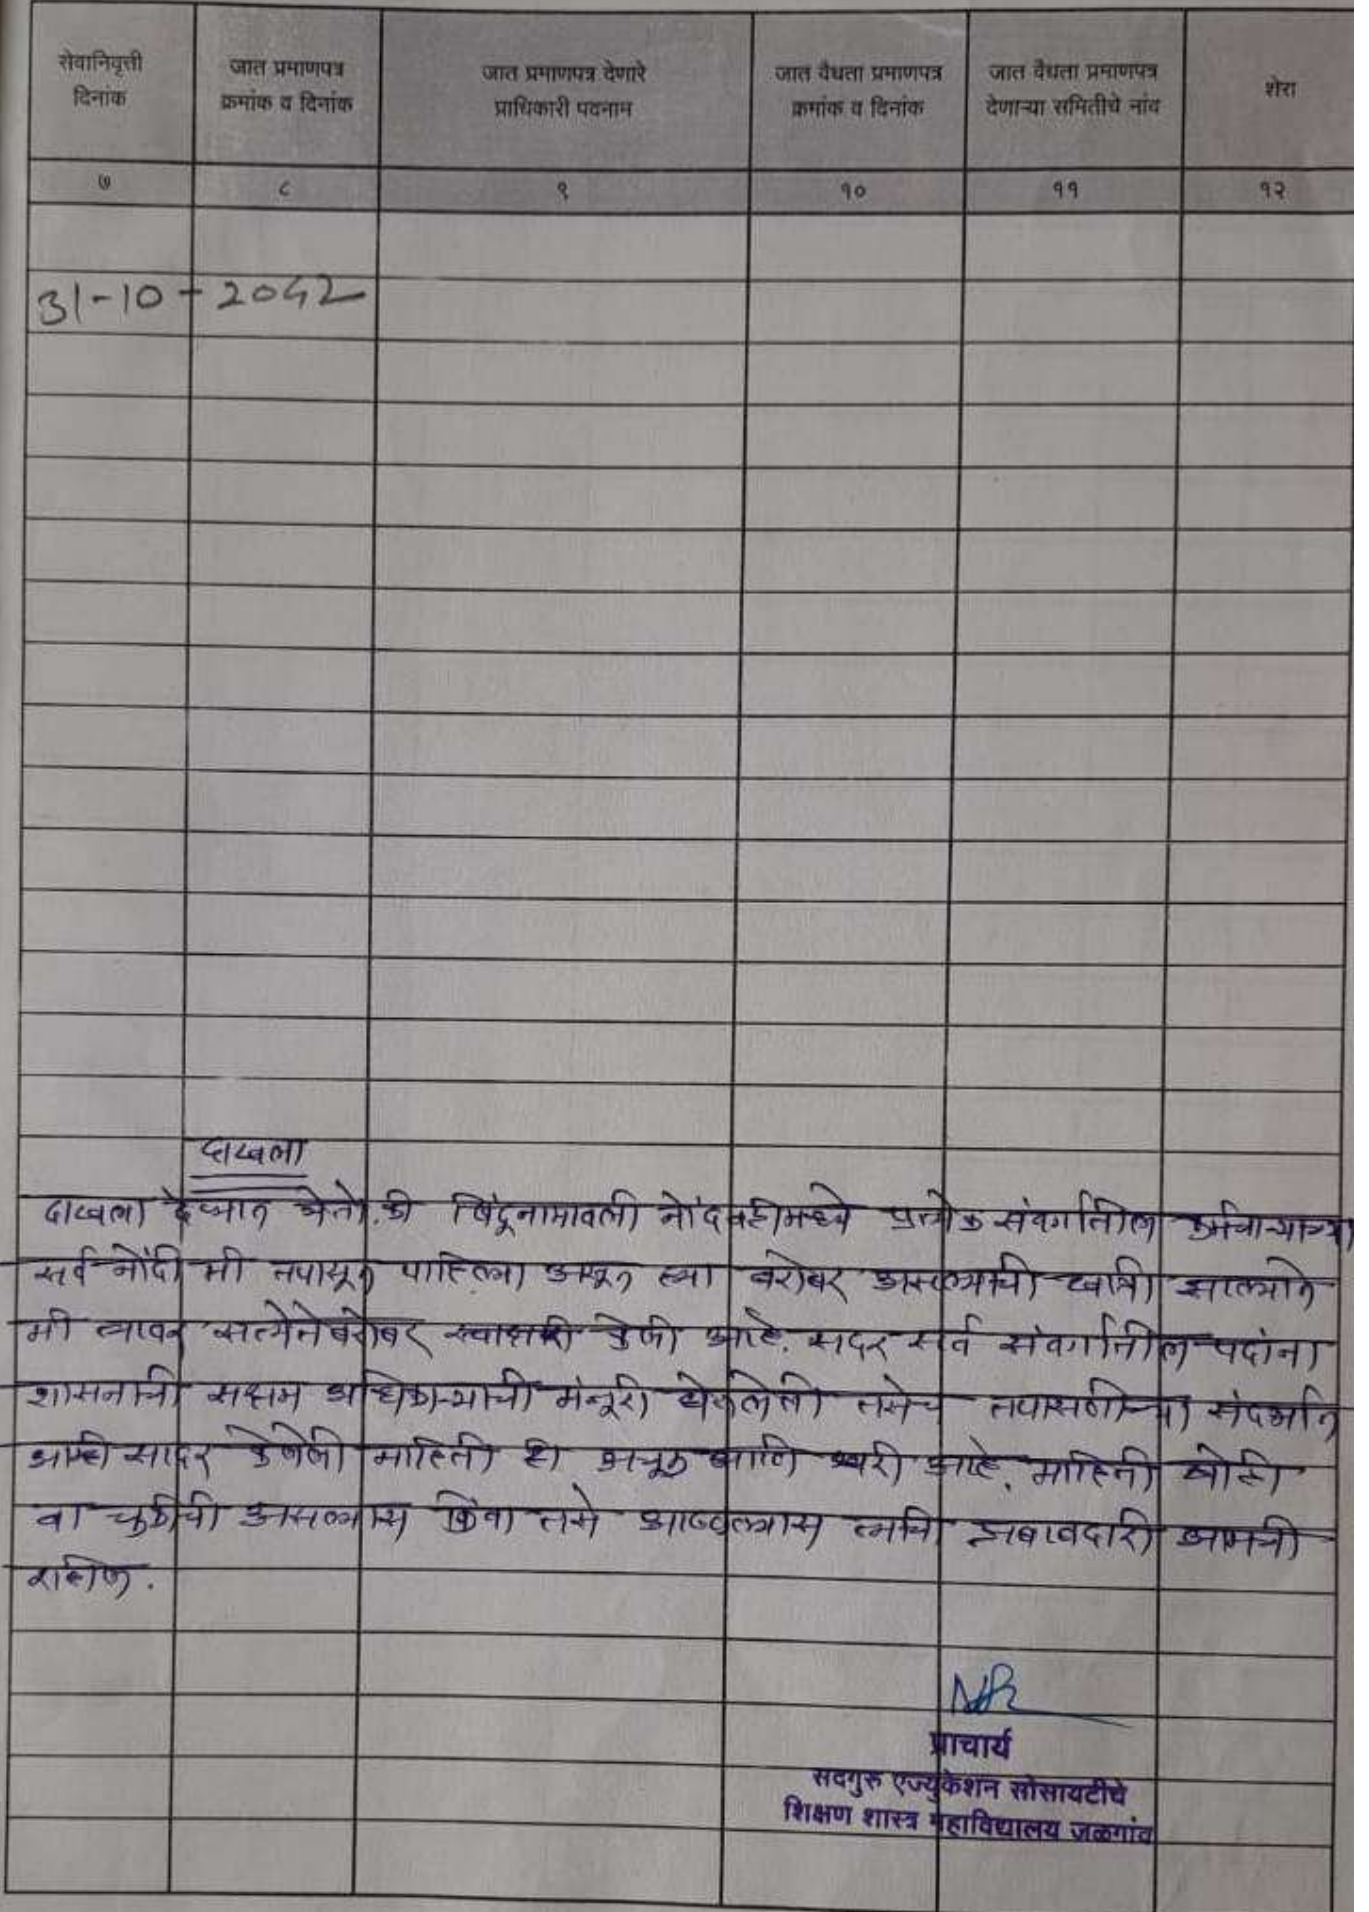 सेवानिवृत्ती दिनांक
जात प्रमाणपत्र क्रमांक व दिनांक
जात प्रमाणपत्र देणारे प्राधिकारी पदनाम
जात वैधता प्रमाणपत्र क्रमांक व दिनांक
जात वैधता प्रमाणपत्र देणाऱ्या समितीचे नांव
शेरा
७ ८ ९ १० ११ १२
31-10-2042
दाखला
दाखला देण्यात येतो की बिंदूनामावली नोंदवहीमध्ये प्रत्येक संवर्गातील कर्मचाऱ्यांच्या
सर्व नोंदी मी तपासून पाहिल्या असून त्या बरोबर असल्याची खात्री झाल्याने
मी त्यावर सत्यतेबरोबर स्वाक्षरी केली आहे. सदर सर्व संवर्गातील पदांना
शासनाची सक्षम अधिकाऱ्याची मंजूरी घेतलेली तसेच तपासणीच्या संदर्भात
आम्ही सादर केलेली माहिती ही अचूक आणि खरी आहे. माहिती खोटी
वा चुकीची असल्यास किंवा तसे आढळल्यास त्याची जबाबदारी आमची
राहील.
प्राचार्य
सदगुरु एज्युकेशन सोसायटीचे
शिक्षण शास्त्र महाविद्यालय जळगांव